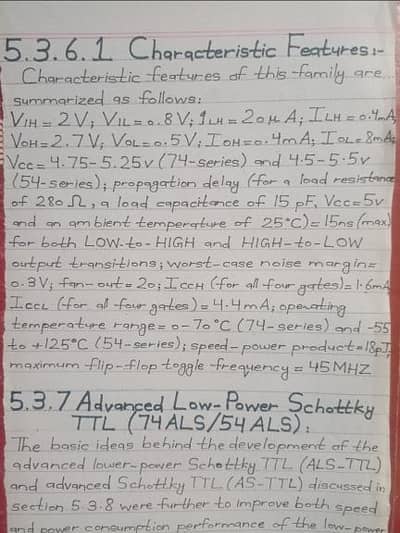 5.3.6.1 Characteristic Features:-
Characteristic features of this family are
summarized as follows:
VIH = 2V; VIL = 0.8V; IIH = 20μA; IIH = 0.4mA;
VOH = 2.7V; VOL = 0.5V; IOH = 0.4mA; IOL = 8mA;
Vcc = 4.75-5.25v (74-series) and 4.5-5.5v
(54-series); propagation delay (for a load resistance
of 280Ω, a load capacitance of 15 pF, Vcc=5v
and an ambient temperature of 25°C) = 15ns (max)
for both LOW-to-HIGH and HIGH-to-LOW
output transitions; worst-case noise margin=
0.3V; fan-out = 20; ICCH (for all four gates) = 1.6mA
ICCL (for all four gates) = 4.4mA; operating
temperature range = 0-70°C (74-series) and -55
to +125°C (54-series); speed-power product = 18pJ;
maximum flip-flop toggle frequency = 45MHZ
5.3.7 Advanced Low-Power Schottky
TTL (74ALS/54ALS):
The basic ideas behind the development of the
advanced lower-power Schottky TTL (ALS-TTL)
and advanced Schottky TTL (AS-TTL) discussed in
section 5.3.8 were further to improve both speed
and power consumption performance of the low-power